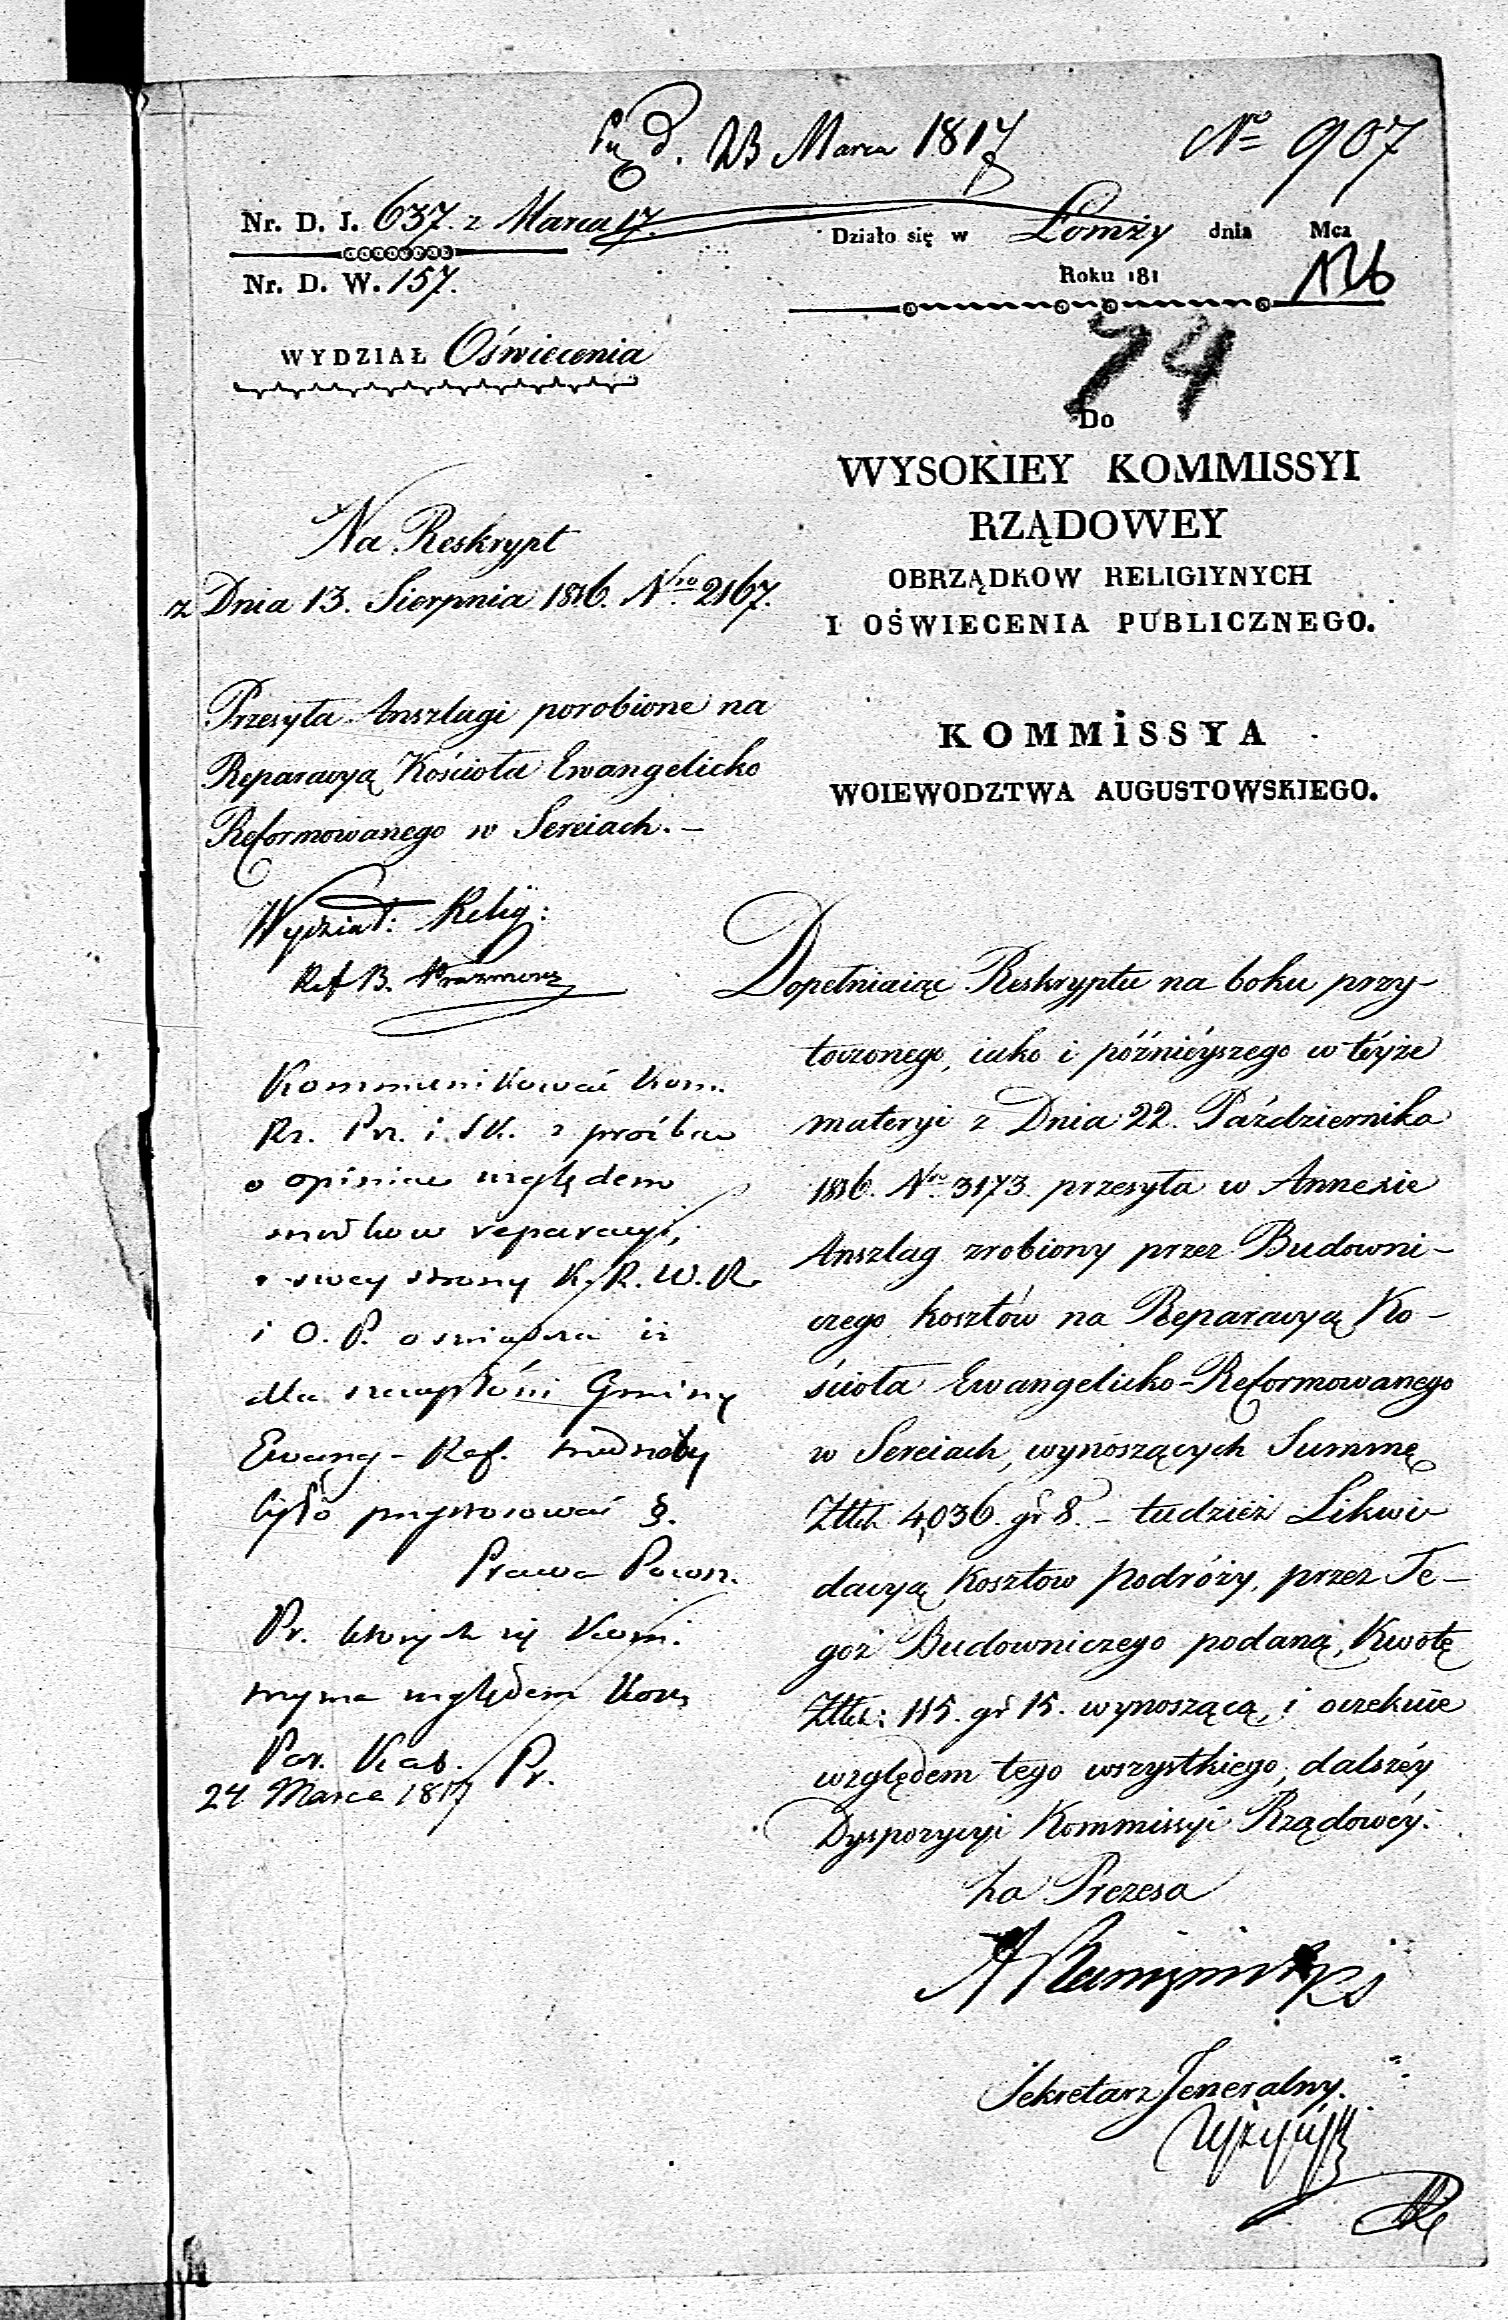 d. 23 Marca 1817
No 907
Nr. D. J. 637. z Marca 17.
Działo się w Łomży dnia Mca
Roku 181
126
Nr. D. W. 157.
74
WYDZIAŁ Oświecenia
Do
WYSOKIEY KOMMISSYI
RZĄDOWEY
OBRZĄDKOW RELIGIYNYCH
I OŚWIECENIA PUBLICZNEGO.
Na Reskrypt
z Dnia 13. Sierpnia 1816. Nro 2167.
Przesyła Anszlagi porobione na
Reparacyą Kościoła Ewangelicko
Reformowanego w Sereiach. –
KOMMISSYA
WOIEWODZTWA AUGUSTOWSKIEGO.
Wydział: Relig:
Ref B.
Kommunikować Kom.
Rz. Prz. i SK. z prośbą
o opinią względem
reparacyi,
z swey strony K. R. W. R.
i O. P. oświadcza iż
dla szczupłości Gminy
Ewang – Ref. trudnoby
było przystosować §.
Prawa Powsz.
Pr. których się Kom.
trzyma względem Kość.
Par. Kat. Pr.
24 Marca 1817
Dopełniaiąc Reskryptu na boku przy–
toczonego, iako i późnieyszego w téyże
materyi z Dnia 22. Października
1816. Nro 3173. przesyła w Annexie
Anszlag zrobiony przez Budowni–
czego kosztów na Reparacyą Ko–
ścioła Ewangelicko–Reformowanego
w Sereiach, wynoszących Summę
Złłch 4,036. gr 8. – tudzież Likwi–
dacyą Kosztow Podróży, przez Te–
goż Budowniczego podaną, Kwotę
Złłch: 115. gr 15. wynoszącą, i oczekuie
względem tego wszystkiego, dalszéy
Dyspozycyi Kommissyi Rządowéy.
Za Prezesa
Sekretarz Jeneralny.